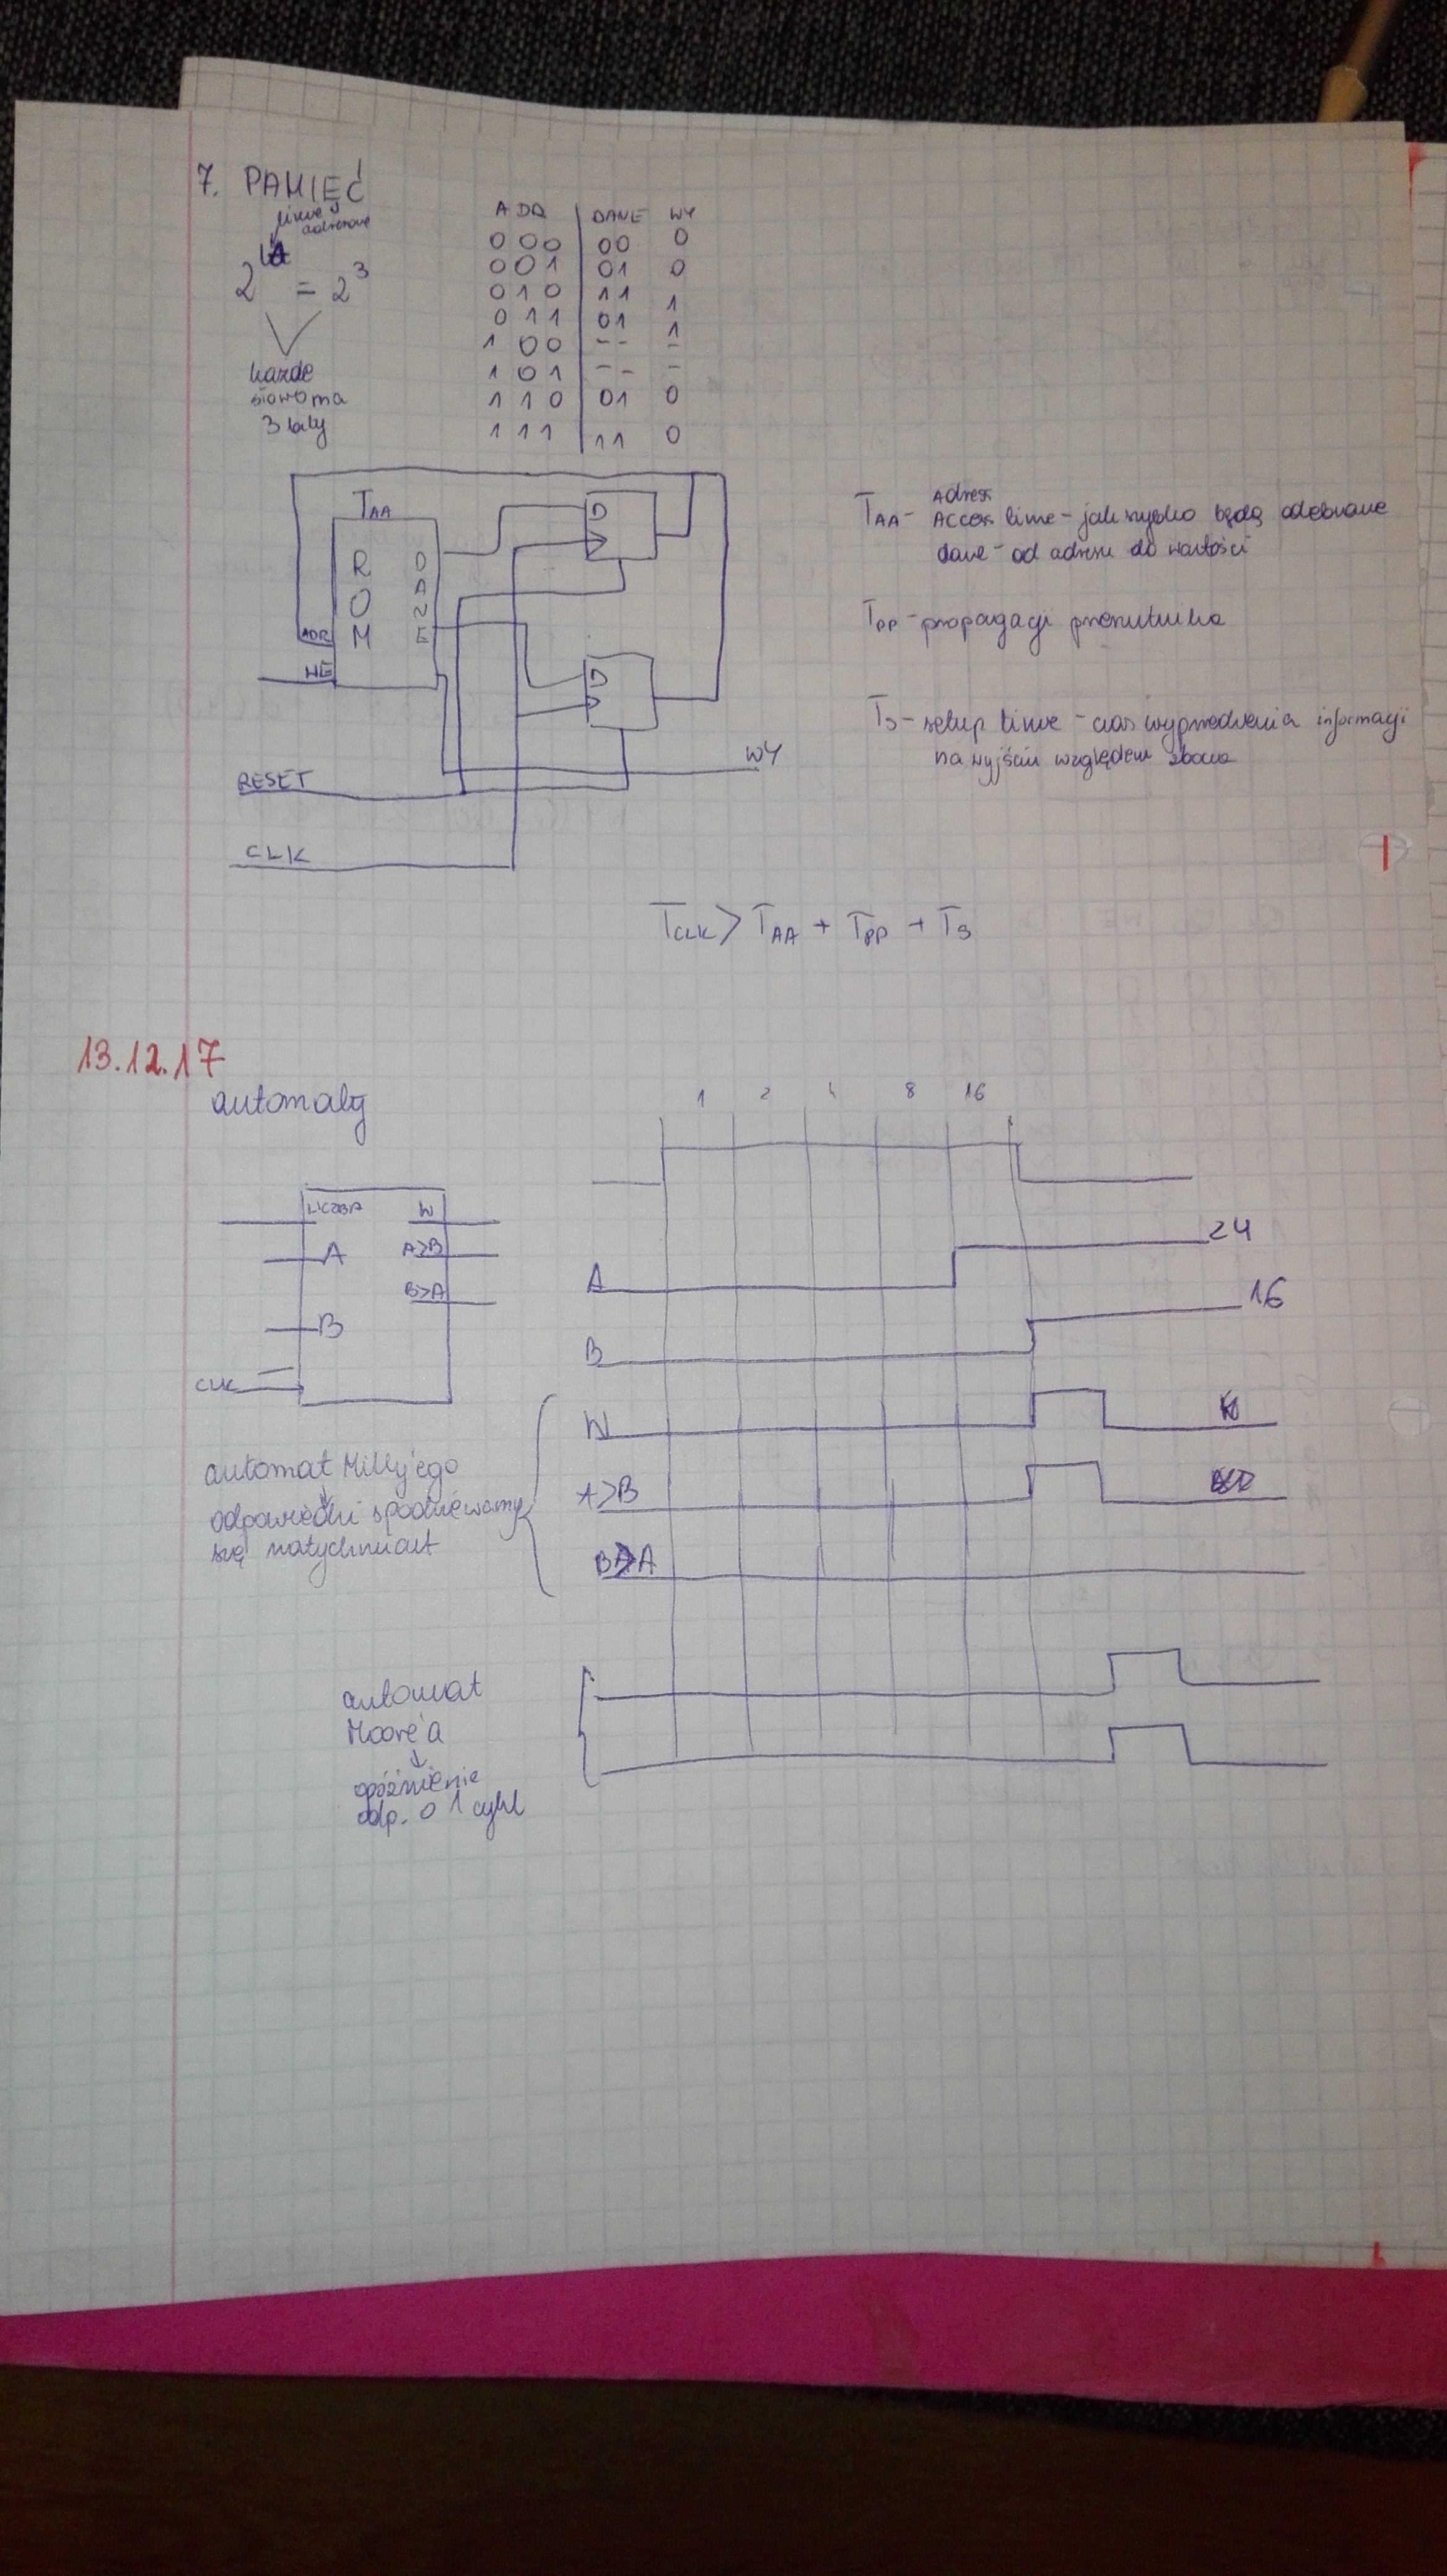 7. PAMIĘĆ
linie
adresowe
2^LA = 2^3
każde
słowo ma
3 bity
ADR | DANE WY
000 | 00 0
001 | 01 0
010 | 11 1
011 | 01 1
100 | -- -
101 | -- -
110 | 01 0
111 | 11 0
TAA
ROM
DANE
ADR
WE
D
D
WY
RESET
CLK
Adress
TAA - Access time - jak szybko będą odebrane
dane - od adresu do wartości
TPP - propagacji przerzutnika
TS - setup time - czas wyprzedzenia informacji
na wyjściu względem zbocza
TCLK > TAA + TPP + TS
13.12.17
automaty
1 2 4 8 16
LICZBA W
A A>B
B>A
B
CLK
A 24
B 16
W
A>B
B>A
automat Milly'ego
odpowiedzi spodziewamy
się natychmiast
automat
Moore'a
↓
opóźnienie
odp. o 1 cykl